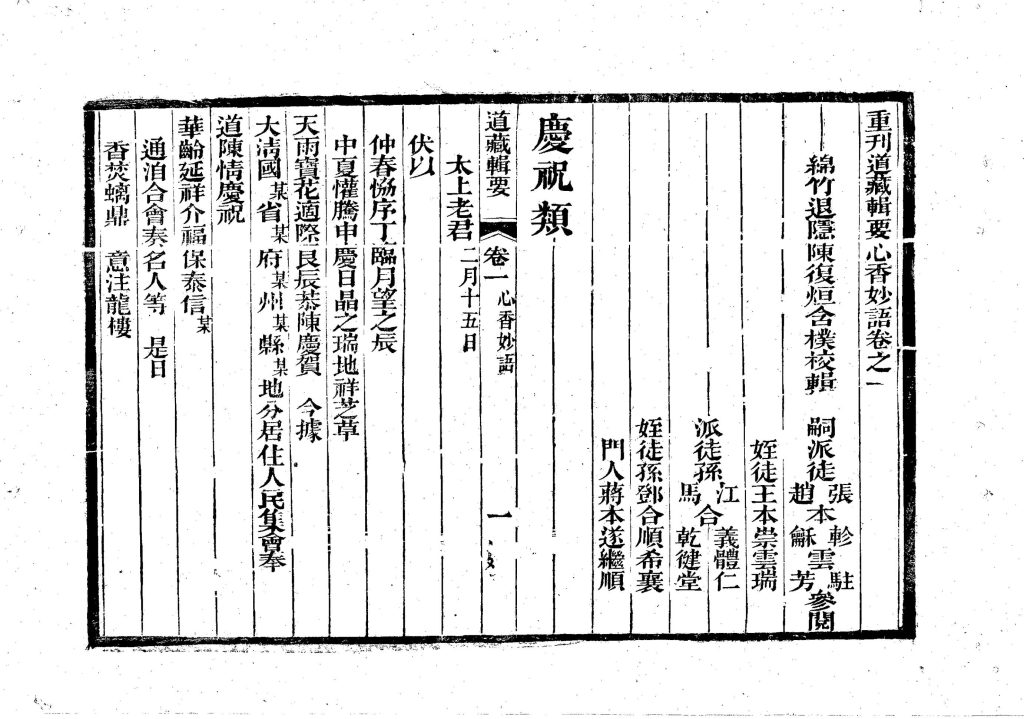 重刊道藏輯要心香妙語卷之一
綿竹退隱陳復烜含樸校輯
嗣派徒張本軫雲駐參閱
趙本龢雲芳
姪徒王本崇雲瑞
派徒孫江合義體仁
馬合乾健堂
姪徒孫鄧合順希襄
門人蔣本遂繼順
慶祝類
道藏輯要 卷一 心香妙語 一
太上老君二月十五日
伏以
仲春恊序丁臨月望之辰
中夏懽騰申慶日晶之瑞地祥芝草
天雨寶花適際良辰恭陳慶賀 今據
大淸國某省某府某州某縣某地分居住人民集會奉
道陳情慶祝
華齡延祥介福保泰信某
通洎合會奏名人等 是日
香焚螭鼎 意注龍樓